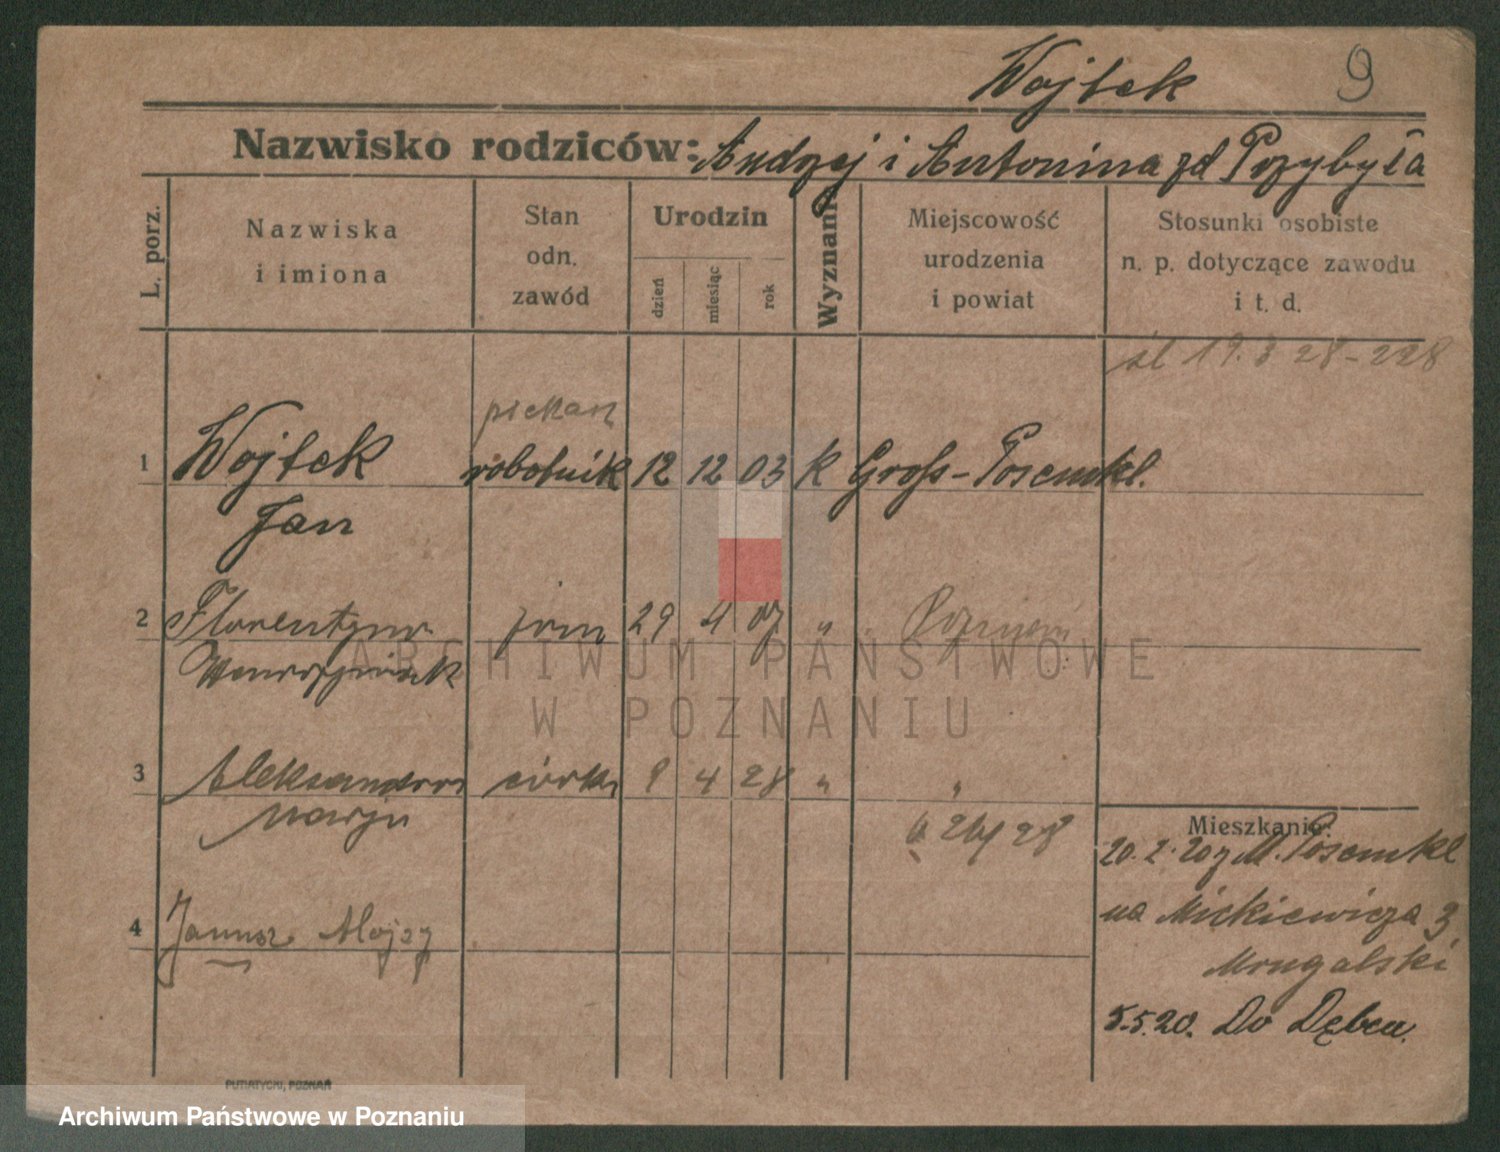 Wojtek 9
Nazwisko rodziców: Andrzej i Antonina zd Przybyła
L. porz.
Nazwiska
i imiona
Stan
odn.
zawód
Urodzin
dzień
miesiąc
rok
Wyznanie
Miejscowość
urodzenia
i powiat
Stosunki osobiste
n. p. dotyczące zawodu
i t. d.
śl 19. 3 28 - 228
piekarz
1 Wojtek robotnik 12 12 03 k Gross-Posemkl.
Jan
2 Florentyna żona 29 4 07 " Poznań
3 Aleksandra córka 9 4 28 " "
Marja
28
Mieszkanie:
20. 2. 20 z M. Posemkl
na Mickiewicza 3
Mrugalski
4 Janusz Alojzy
5.5.20. Do Dębca.
PUTIATYCKI, POZNAŃ
ARCHIWUM PAŃSTWOWE
W POZNANIU
Archiwum Państwowe w Poznaniu